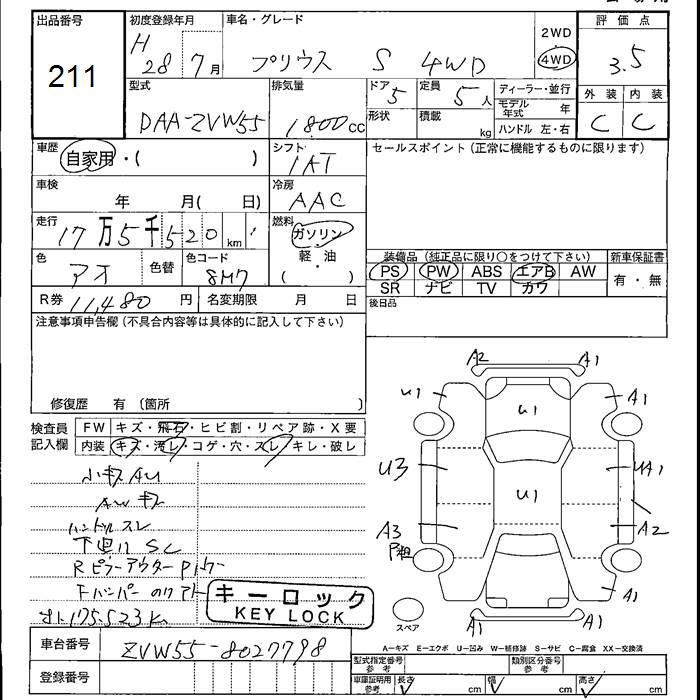 出品番号
211
初度登録年月
H 28 7月
車名・グレード
プリウス S 4WD
2WD
4WD
評価点
3.5
外装 内装
C C
型式
DAA-ZVW55
排気量
1800cc
ドア 5
形状
定員 5人
積載 kg
ディーラー・並行
モデル年式 年
ハンドル 左・右
車歴
自家用・( )
シフト
セールスポイント(正常に機能するものに限ります)
車検
年 月( 日)
冷房
AAC
走行
17万5千520km
燃料
ガソリン
軽・油
( )
色
アオ
色替
色コード
8M7
装備品(純正品に限り○をつけて下さい)
新車保証書
PS PW ABS エアB AW
有・無
SR ナビ TV カワ
後日品
R券 11,480円
名変期限 月 日
注意事項申告欄(不具合内容等は具体的に記入して下さい)
修復歴 有〔箇所 〕
検査員記入欄
FW キズ・飛石・ヒビ割・リペア跡・X要
内装 キズ・汚レ・コゲ・穴・スレ・キレ・破レ
小キズAU
AWキズ
ハンドルスレ
下回りSC
Rピラーアウター
175523K
キーロック
KEY LOCK
A2
A1
U1
A1
U1
U3
U1
UA1
A3
A2
A1
A1
A1
スペア
A=キズ E=エクボ U=凹み W=補修跡 S=サビ C=腐食 XX=交換済
車台番号
ZVW55-8027798
登録番号
型式指定番号 参考
類別区分番号 参考
車庫証明用 参考
長さ cm
幅 cm
高さ cm